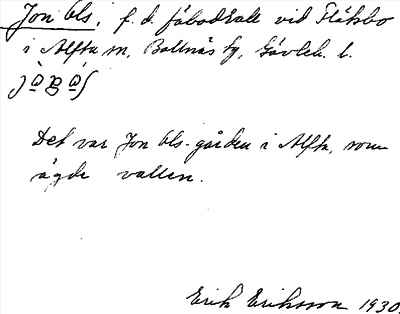 Jon Ols, f. d. fäbodställe vid Flåksbo
i Alfta sn, Bollnäs tg, Gävleb. l.
Det var Jon Ols-gården i Alfta, som
ägde vallen.
Erik Eriksson 1930.